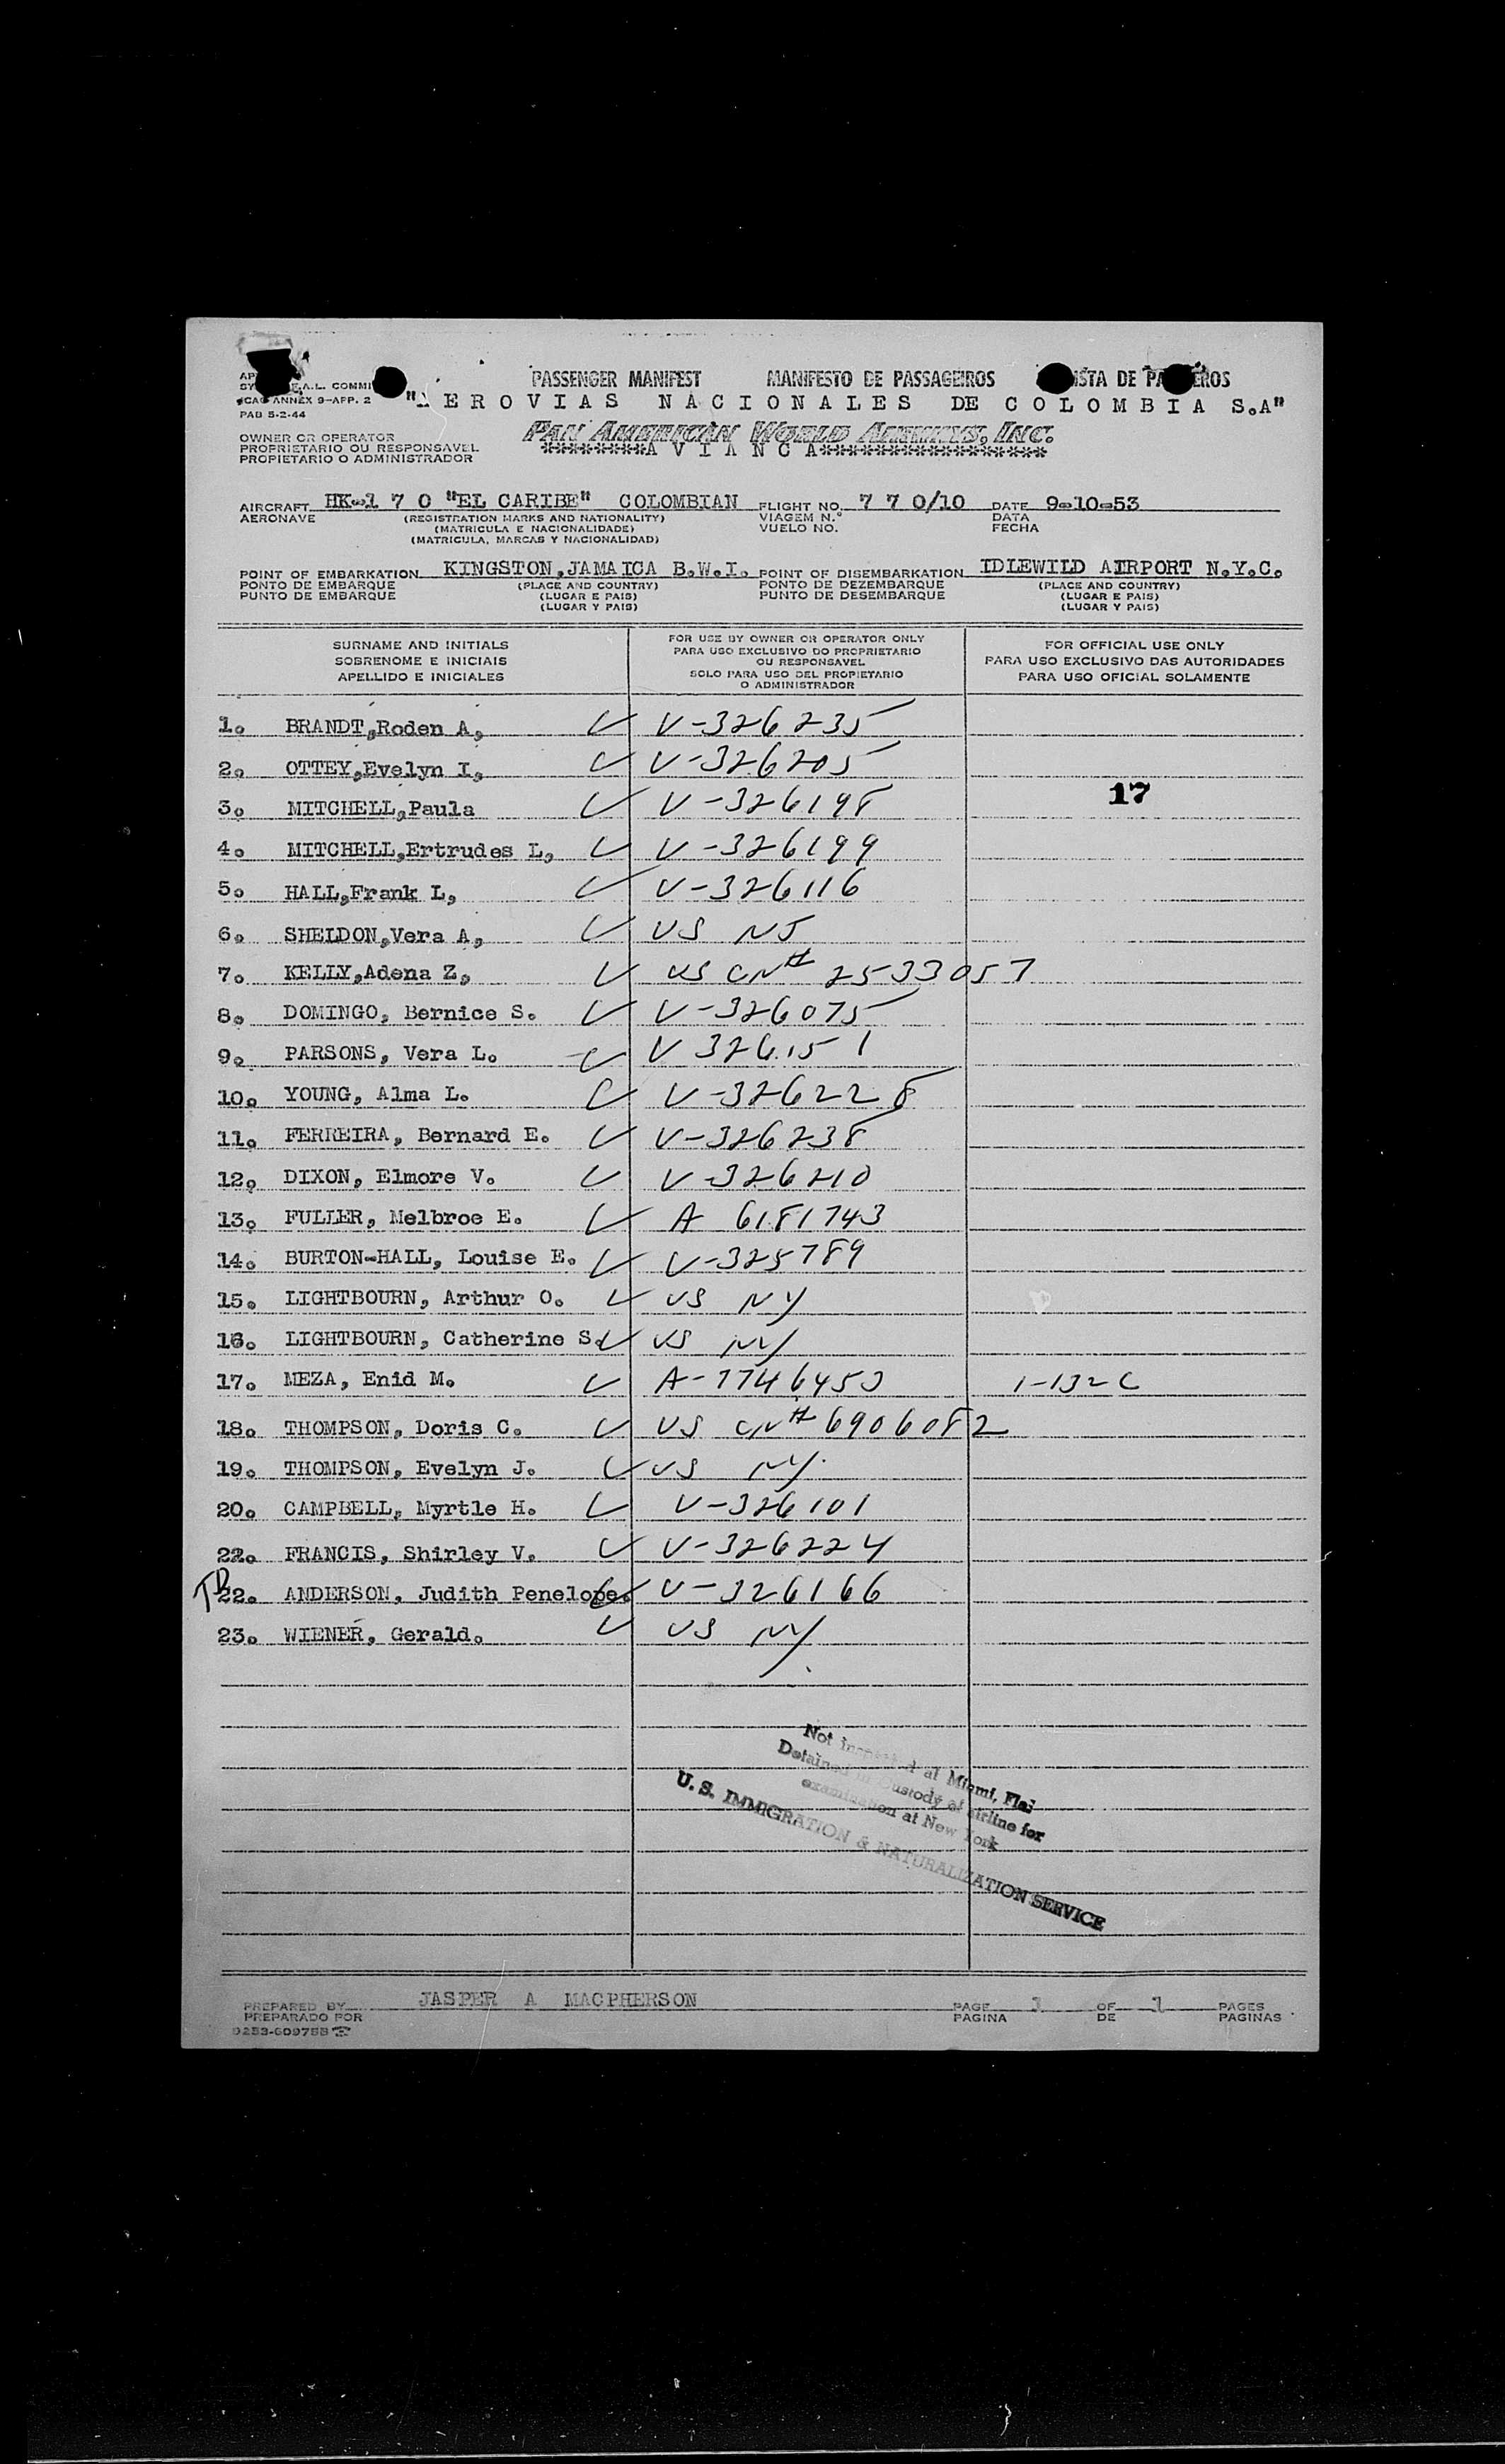 PASSENGER MANIFEST MANIFESTO DE PASSAGEIROS LISTA DE PASAJEROS
COMMI
ICAO ANNEX 9-APP. 2
PAB 5-2-44
"AEROVIAS NACIONALES DE COLOMBIA S.A"
PAN AMERICAN WORLD AIRWAYS, INC.
********AVIANCA******************
OWNER OR OPERATOR
PROPRIETARIO OU RESPONSAVEL
PROPIETARIO O ADMINISTRADOR
AIRCRAFT HK-170 "EL CARIBE" COLOMBIAN FLIGHT NO. 770/10 DATE 9-10-53
AERONAVE (REGISTRATION MARKS AND NATIONALITY) VIAGEM N.° DATA
(MATRICULA E NACIONALIDADE) VUELO NO. FECHA
(MATRICULA, MARCAS Y NACIONALIDAD)
POINT OF EMBARKATION KINGSTON, JAMAICA B.W.I. POINT OF DISEMBARKATION IDLEWILD AIRPORT N.Y.C.
PONTO DE EMBARQUE (PLACE AND COUNTRY) PONTO DE DEZEMBARQUE (PLACE AND COUNTRY)
PUNTO DE EMBARQUE (LUGAR E PAIS) PUNTO DE DESEMBARQUE (LUGAR E PAIS)
(LUGAR Y PAIS) (LUGAR Y PAIS)
SURNAME AND INITIALS
SOBRENOME E INICIAIS
APELLIDO E INICIALES
FOR USE BY OWNER OR OPERATOR ONLY
PARA USO EXCLUSIVO DO PROPRIETARIO
OU RESPONSAVEL
SOLO PARA USO DEL PROPIETARIO
O ADMINISTRADOR
FOR OFFICIAL USE ONLY
PARA USO EXCLUSIVO DAS AUTORIDADES
PARA USO OFICIAL SOLAMENTE
1. BRANDT,Roden A, ✓ V-326235
2. OTTEY,Evelyn I, ✓ V-326205
3. MITCHELL,Paula ✓ V-326198 17
4. MITCHELL,Ertrudes L, ✓ V-326199
5. HALL,Frank L, ✓ V-326116
6. SHELDON,Vera A, ✓ US NJ
7. KELLY,Adena Z, ✓ US CN# 2533057
8. DOMINGO, Bernice S. ✓ V-326075
9. PARSONS, Vera L. ✓ V 326151
10. YOUNG, Alma L. ✓ V-326228
11. FERREIRA, Bernard E. ✓ V-326238
12. DIXON, Elmore V. ✓ V-326210
13. FULLER, Melbroe E. ✓ A 6181743
14. BURTON-HALL, Louise E. ✓ V-325789
15. LIGHTBOURN, Arthur O. ✓ US NY
16. LIGHTBOURN, Catherine S. ✓ US NY
17. MEZA, Enid M. ✓ A-7746453 1-132 C
18. THOMPSON, Doris C. ✓ US CN# 6906082
19. THOMPSON, Evelyn J. ✓ US NY.
20. CAMPBELL, Myrtle H. ✓ V-326101
22. FRANCIS, Shirley V. ✓ V-326224
22. ANDERSON, Judith Penelope. ✓ V-326166
23. WIENER, Gerald. ✓ US NY
Not inspected at Miami, Fla;
Detained in custody of airline for
examination at New York
U.S. IMMIGRATION & NATURALIZATION SERVICE
PREPARED BY JASPER A MACPHERSON PAGE 1 OF 1 PAGES
PREPARADO POR PAGINA DE PAGINAS
9253-60975B